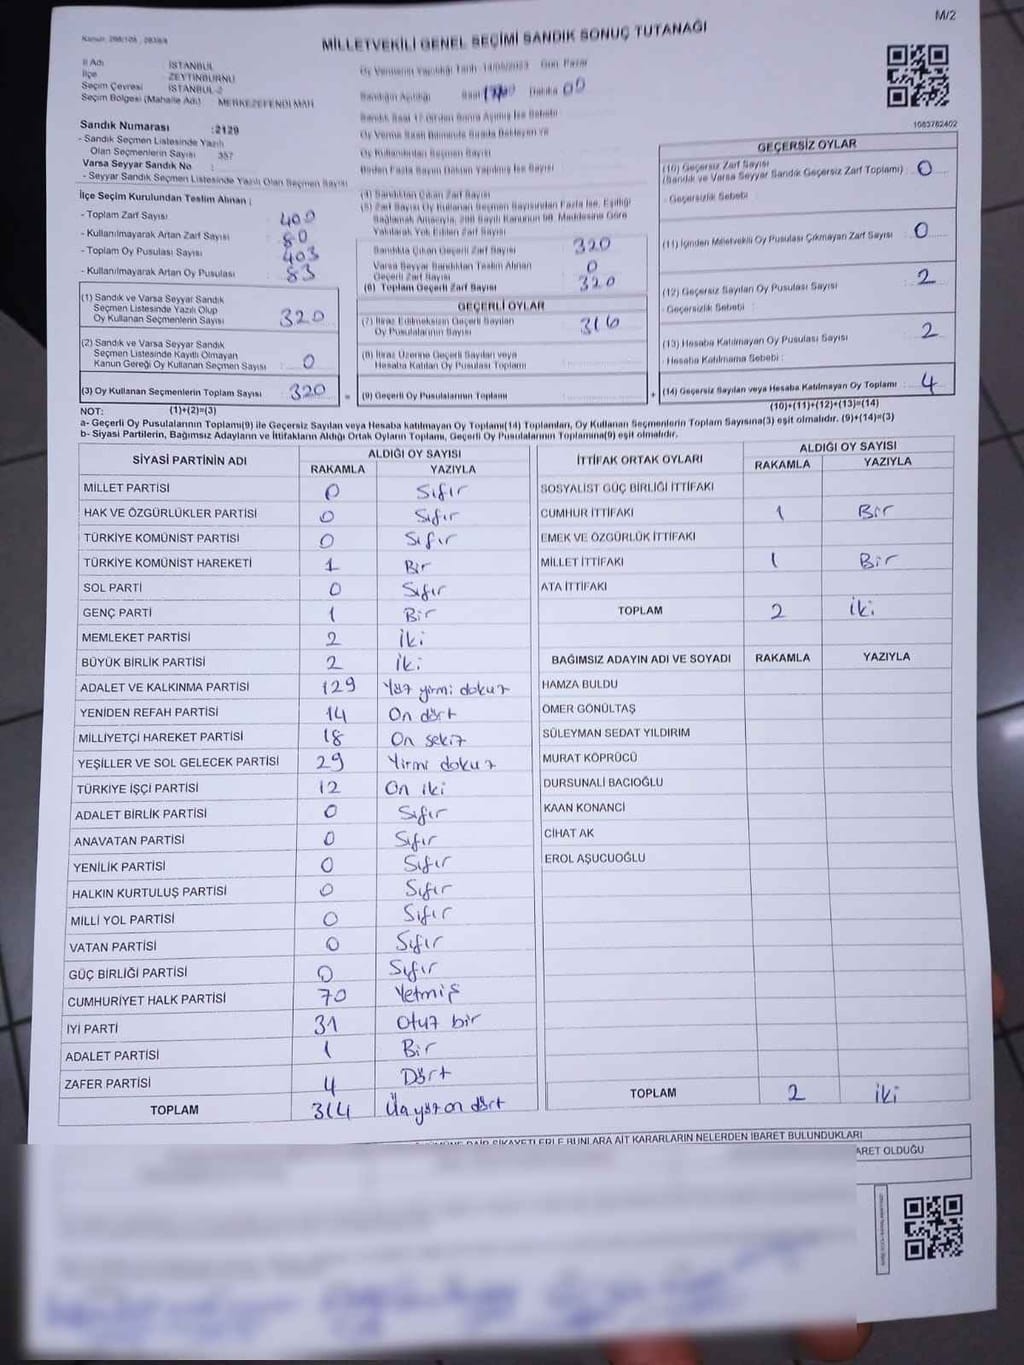 M/2
MİLLETVEKİLİ GENEL SEÇİMİ SANDIK SONUÇ TUTANAĞI
İl Adı İSTANBUL
İlçe ZEYTİNBURNU
Seçim Çevresi İSTANBUL-2
Seçim Bölgesi (Mahalle Adı) MERKEZEFENDİ MAH
Sandık Numarası :2129
- Sandık Seçmen Listesinde Yazılı
Olan Seçmenlerin Sayısı 357
Varsa Seyyar Sandık No
- Seyyar Sandık Seçmen Listesinde Yazılı Olan Seçmen Sayısı
İlçe Seçim Kurulundan Teslim Alınan ;
- Toplam Zarf Sayısı 400
- Kullanılmayarak Artan Zarf Sayısı 80
- Toplam Oy Pusulası Sayısı 403
- Kullanılmayarak Artan Oy Pusulası 83
(1) Sandık ve Varsa Seyyar Sandık
Seçmen Listesinde Yazılı Olup
Oy Kullanan Seçmenlerin Sayısı 320
(2) Sandık ve Varsa Seyyar Sandık
Seçmen Listesinde Kayıtlı Olmayan
Kanun Gereği Oy Kullanan Seçmen Sayısı 0
(3) Oy Kullanan Seçmenlerin Toplam Sayısı 320
Sandıkta Çıkan Geçerli Zarf Sayısı 320
Varsa Seyyar Sandıktan Teslim Alınan
Geçerli Zarf Sayısı 0
(6) Toplam Geçerli Zarf Sayısı 320
GEÇERLİ OYLAR
(7) İtiraz Edilmeksizin Geçerli Sayılan
Oy Pusulalarının Sayısı 316
(8) İtiraz Üzerine Geçerli Sayılan veya
Hesaba Katılan Oy Pusulası Toplamı
= (9) Geçerli Oy Pusulalarının Toplamı +
1083782402
GEÇERSİZ OYLAR
(10) Geçersiz Zarf Sayısı
(Sandık ve Varsa Seyyar Sandık Geçersiz Zarf Toplamı) : 0
- Geçersizlik Sebebi :
(11) İçinden Milletvekili Oy Pusulası Çıkmayan Zarf Sayısı : 0
(12) Geçersiz Sayılan Oy Pusulası Sayısı : 2
- Geçersizlik Sebebi :
(13) Hesaba Katılmayan Oy Pusulası Sayısı : 2
- Hesaba Katılmama Sebebi :
(14) Geçersiz Sayılan veya Hesaba Katılmayan Oy Toplamı : 4
NOT: (1)+(2)=(3) (10)+(11)+(12)+(13)=(14)
a- Geçerli Oy Pusulalarının Toplamı(9) ile Geçersiz Sayılan veya Hesaba katılmayan Oy Toplamı(14) Toplamları, Oy Kullanan Seçmenlerin Toplam Sayısına(3) eşit olmalıdır. (9)+(14)=(3)
b- Siyasi Partilerin, Bağımsız Adayların ve İttifakların Aldığı Ortak Oyların Toplamı, Geçerli Oy Pusulalarının Toplamına(9) eşit olmalıdır.
SİYASİ PARTİNİN ADI ALDIĞI OY SAYISI
RAKAMLA YAZIYLA
MİLLET PARTİSİ 0 Sıfır
HAK VE ÖZGÜRLÜKLER PARTİSİ 0 Sıfır
TÜRKİYE KOMÜNİST PARTİSİ 0 Sıfır
TÜRKİYE KOMÜNİST HAREKETİ 1 Bir
SOL PARTİ 0 Sıfır
GENÇ PARTİ 1 Bir
MEMLEKET PARTİSİ 2 İki
BÜYÜK BİRLİK PARTİSİ 2 İki
ADALET VE KALKINMA PARTİSİ 129 Yüz yirmi dokuz
YENİDEN REFAH PARTİSİ 14 On dört
MİLLİYETÇİ HAREKET PARTİSİ 18 On sekiz
YEŞİLLER VE SOL GELECEK PARTİSİ 29 Yirmi dokuz
TÜRKİYE İŞÇİ PARTİSİ 12 On iki
ADALET BİRLİK PARTİSİ 0 Sıfır
ANAVATAN PARTİSİ 0 Sıfır
YENİLİK PARTİSİ 0 Sıfır
HALKIN KURTULUŞ PARTİSİ 0 Sıfır
MİLLİ YOL PARTİSİ 0 Sıfır
VATAN PARTİSİ 0 Sıfır
GÜÇ BİRLİĞİ PARTİSİ 0 Sıfır
CUMHURİYET HALK PARTİSİ 70 Yetmiş
İYİ PARTİ 31 Otuz bir
ADALET PARTİSİ 1 Bir
ZAFER PARTİSİ 4 Dört
TOPLAM 314 Üçyüz on dört
İTTİFAK ORTAK OYLARI ALDIĞI OY SAYISI
RAKAMLA YAZIYLA
SOSYALİST GÜÇ BİRLİĞİ İTTİFAKI
CUMHUR İTTİFAKI 1 Bir
EMEK VE ÖZGÜRLÜK İTTİFAKI
MİLLET İTTİFAKI 1 Bir
ATA İTTİFAKI
TOPLAM 2 İki
BAĞIMSIZ ADAYIN ADI VE SOYADI RAKAMLA YAZIYLA
HAMZA BULDU
ÖMER GÖNÜLTAŞ
SÜLEYMAN SEDAT YILDIRIM
MURAT KÖPRÜCÜ
DURSUNALİ BACIOĞLU
KAAN KONANCİ
CİHAT AK
EROL AŞUCUOĞLU
TOPLAM 2 iki
ŞİKAYETLERLE BUNLARA AİT KARARLARIN NELERDEN İBARET BULUNDUKLARI
ARET OLDUĞU